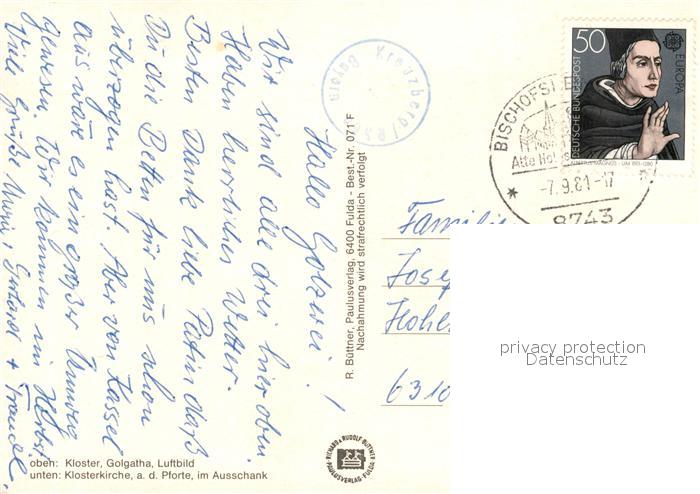 Hallo Golzerei!
Wir sind alle drei hier oben.
Haben herrliches Wetter.
Besten Dank liebe Patin daß
Du die Betten für uns schon
überzogen hast. Aber von Kassel
aus wäre es ein großer Umweg
gewesen. Wir kommen im Herbst
Viele Grüße Maria, +
R. Büttner, Paulusverlag, 6400 Fulda - Best.-Nr. 071 F
Nachahmung wird strafrechtlich verfolgt
oben: Kloster, Golgatha, Luftbild
unten: Klosterkirche, a. d. Pforte, im Ausschank
RICHARD & RUDOLF BÜTTNER
PAULUSVERLAG · FULDA
Kreuzberg/Rhön
50
EUROPA
DEUTSCHE BUNDESPOST
ALBERTUS MAGNUS · UM 1193-1280
BISCHOFSHEI
Alte Hol
-7.9.81-17
8743
Familie
Josef
Hohe
6310
privacy protection
Datenschutz